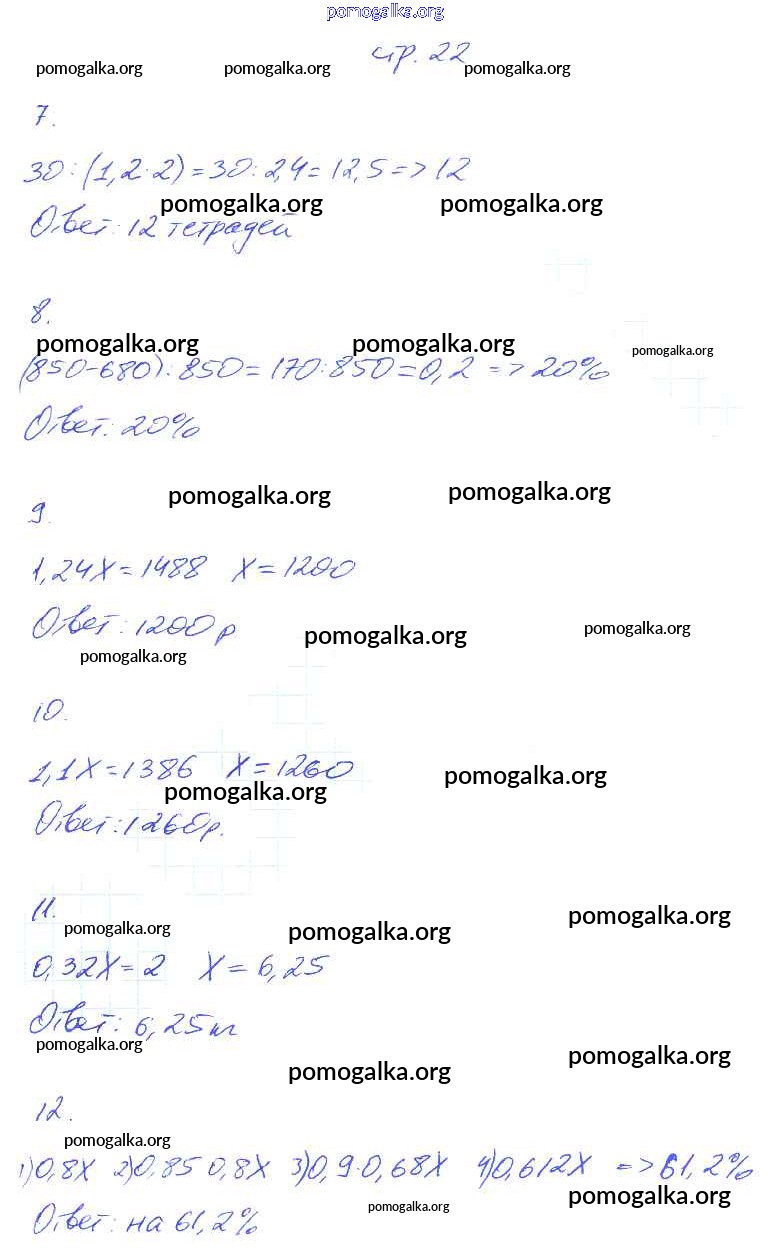 pomogalka.org
стр. 22
pomogalka.org pomogalka.org pomogalka.org
7.
30:(1,2·2)=30:2,4=12,5=>12
pomogalka.org pomogalka.org
Ответ: 12 тетрадей
8.
pomogalka.org pomogalka.org pomogalka.org
(850-680):850=170:850=0,2 => 20%
Ответ: 20%
pomogalka.org pomogalka.org
9.
1,24X=1488 X=1200
Ответ: 1200 р
pomogalka.org pomogalka.org
pomogalka.org
10.
1,1X=1386 X=1260
pomogalka.org pomogalka.org
Ответ: 1260р.
11.
pomogalka.org pomogalka.org pomogalka.org
0,32X=2 X=6,25
Ответ: 6,25 кг
pomogalka.org pomogalka.org pomogalka.org
12.
pomogalka.org
1)0,8X 2)0,85 0,8X 3)0,9·0,68X 4)0,612X => 61,2%
pomogalka.org pomogalka.org
Ответ: на 61,2%